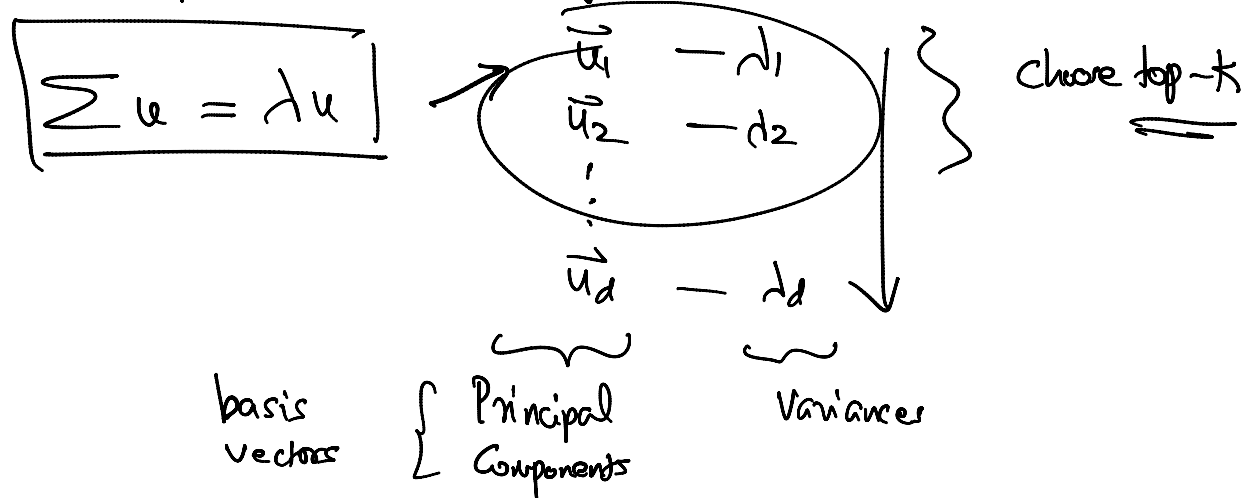 Σu = λu
u⃗₁ — λ₁
u⃗₂ — λ₂
⋮
u⃗d — λd
Choose top-k
basis
vectors
Principal
Components
Variances